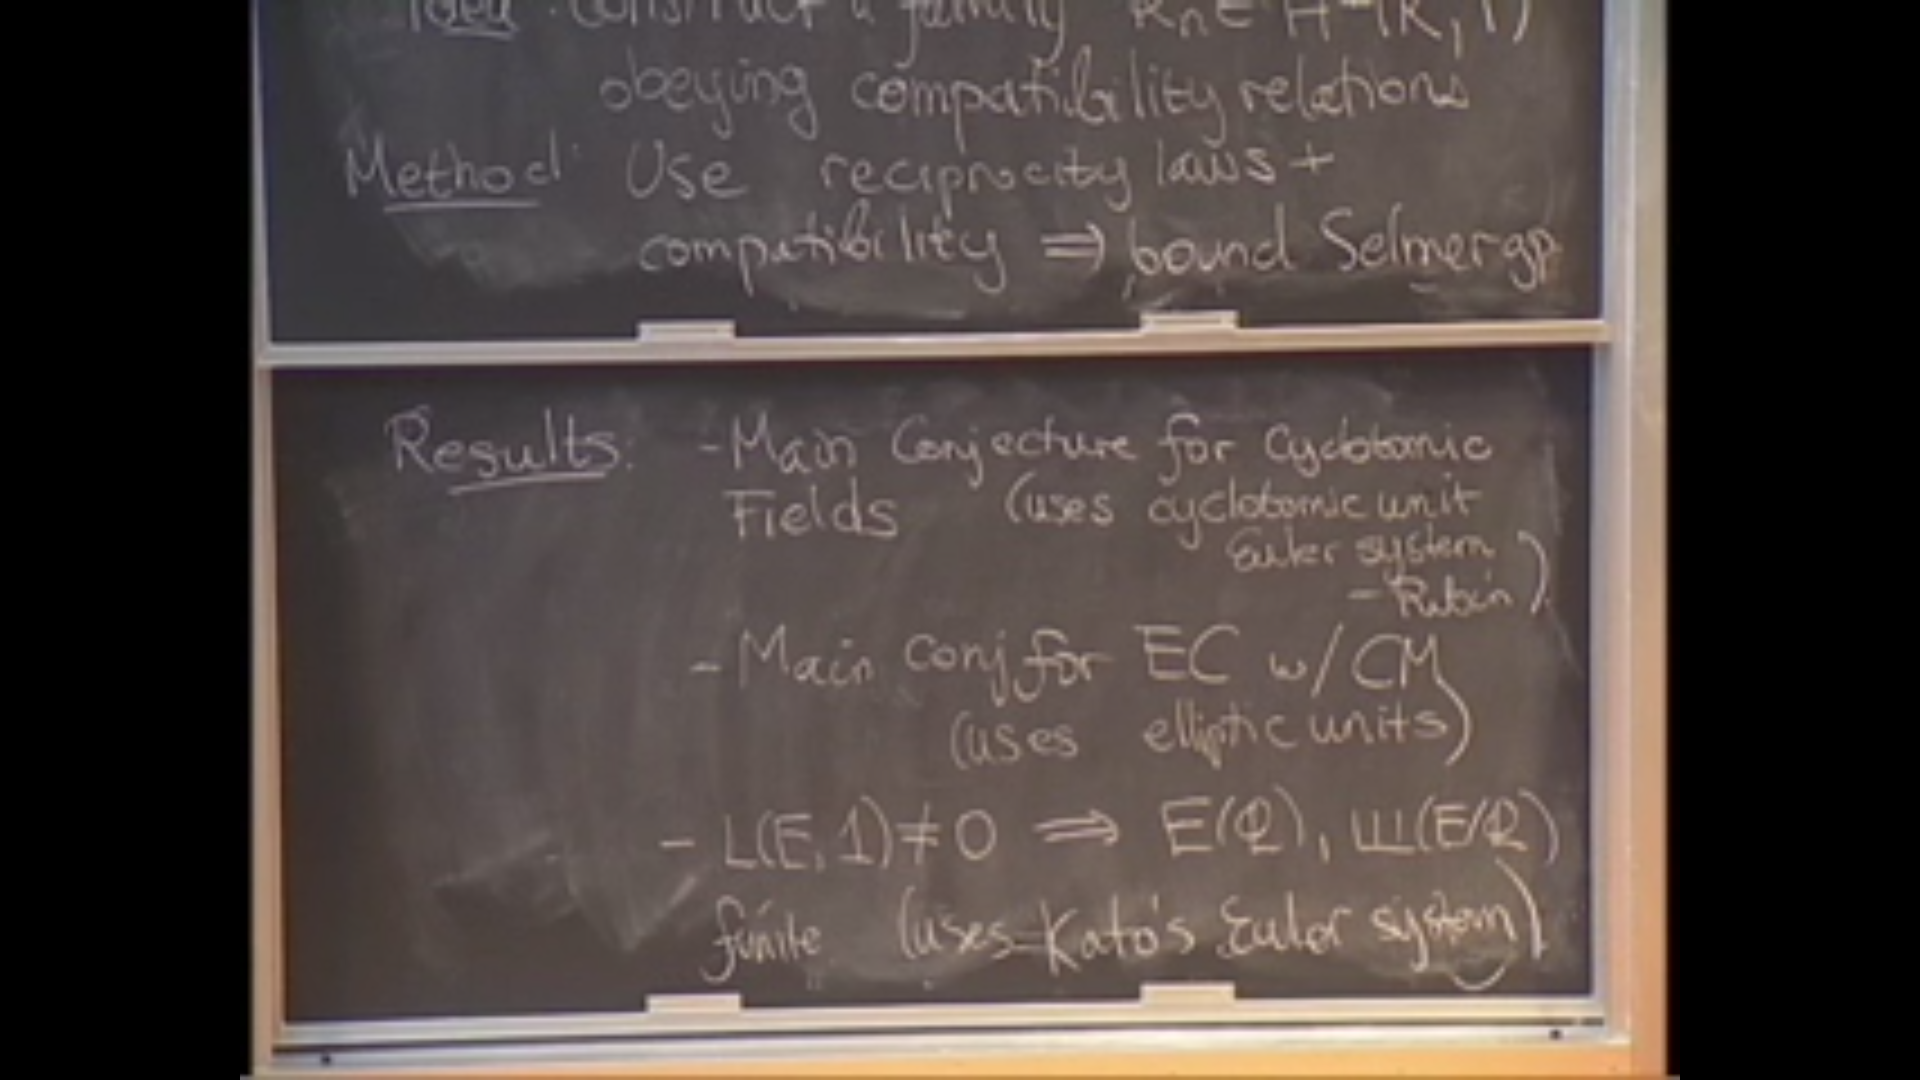 Idea: Construct a family
obeying compatibility relations
Method: Use reciprocity laws +
compatibility ⇒ bound Selmer gp
Results: - Main Conjecture for Cyclotomic
Fields (uses cyclotomic unit
Euler system
- Rubin)
- Main conj for EC w/ CM
(uses elliptic units)
- L(E, 1) ≠ 0 ⇒ E(ℚ), Ш(E/ℚ)
finite (uses Kato's Euler system)